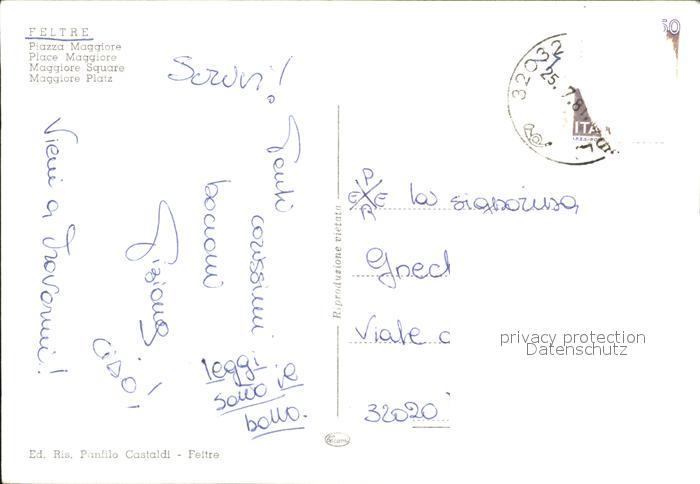 FELTRE
Piazza Maggiore
Place Maggiore
Maggiore Square
Maggiore Platz
Scrivi!
Tanti
carissimi
bacioni
Tiziana.
ciao!
Vieni a trovarmi!
leggi
sotto il
bollo.
Riproduzione vietata
32032
25.7.8
50
ITA
PER
la signorina
Viale
32020
privacy protection
Datenschutz
Ed. Ris. Panfilo Castaldi - Feltre